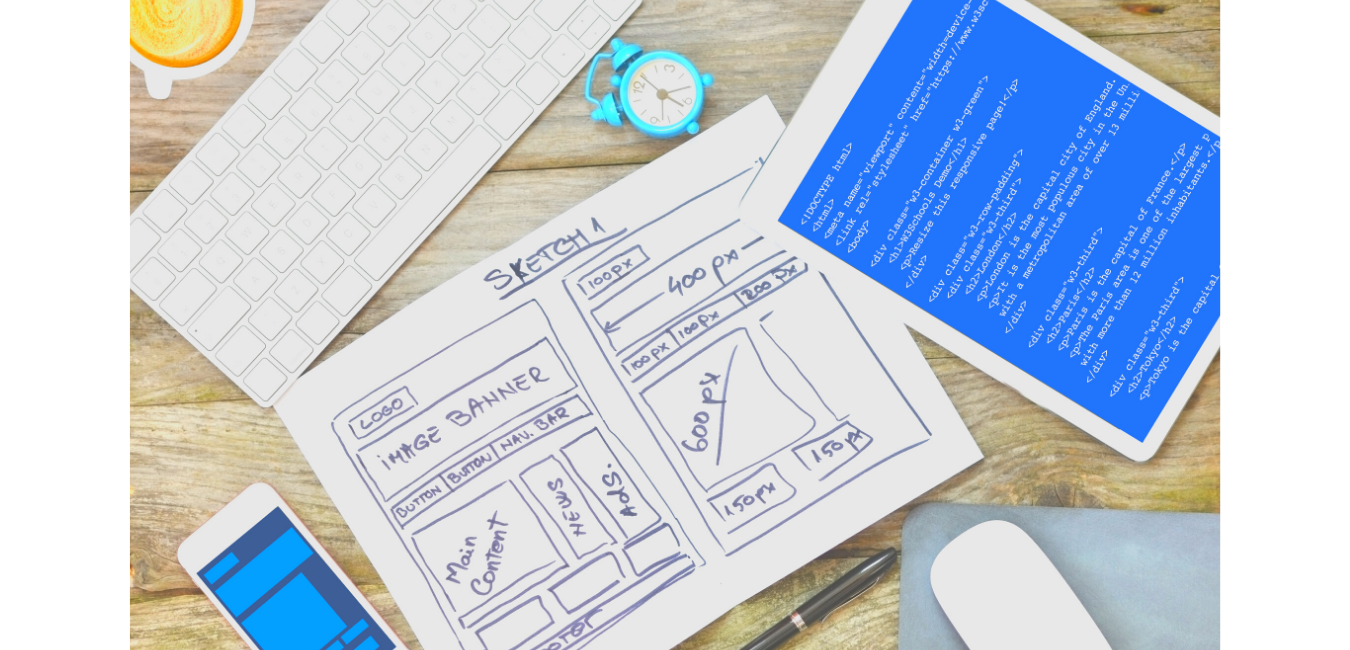 SKETCH 1
LOGO
IMAGE BANNER
BUTTON BUTTON NAV. BAR
Main
Content
NEWS
Ads.
100px
400 px
100px 100px 200 px
600 px
150px
150px
<!DOCTYPE html>
<html>
<meta name="viewport" content="width=device-
<link rel="stylesheet" href="https://www.w3sc
<body>
<div class="w3-container w3-green">
<h1>W3Schools Demo</h1>
<p>Resize this responsive page!</p>
</div>
<div class="w3-row-padding">
<div class="w3-third">
<h2>London</h2>
<p>London is the capital city of England.
<p>It is the most populous city in the Un
with a metropolitan area of over 13 milli
</div>
<div class="w3-third">
<h2>Paris</h2>
<p>Paris is the capital of France.</p>
<p>The Paris area is one of the largest p
with more than 12 million inhabitants.</p
</div>
<div class="w3-third">
<h2>Tokyo</h2>
<p>Tokyo is the capital
12
3